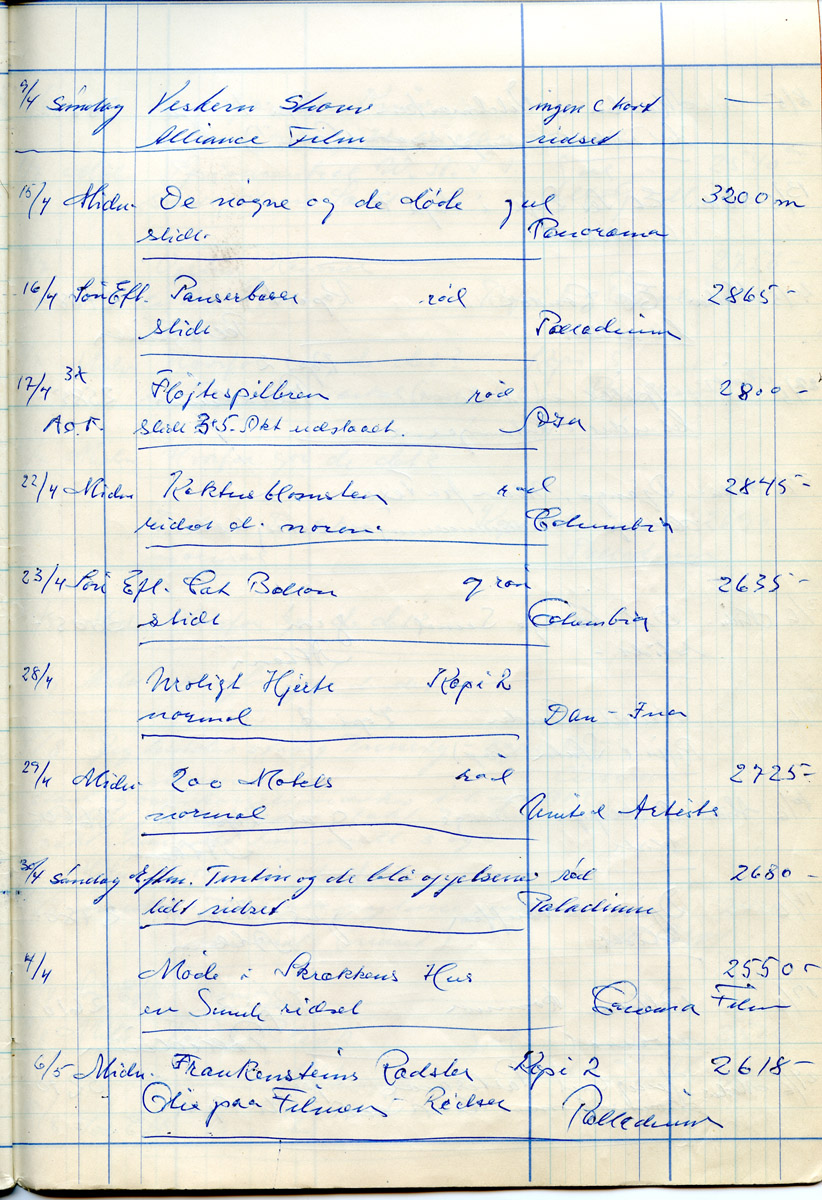 9/4 Søndag Western Show ingen C kort —
Alliance Film ridset
15/4 Midn. De nøgne og de døde gul 3200 m
slidt. Panorama
16/4 Søn Eft. Panserbasse rød 2865 -
slidt Palladium
17/4 3x Fløjtespilleren rød 2800 -
slidt 3+5. Akt udslaaet.
22/4 Midn Kaktusblomsten rød 2845 -
ridset el. norm. Columbia
23/4 Søn Eft. Cat Ballou grøn 2635 -
slidt Columbia
28/4 Uroligt Hjerte Kopi 2
normal Dan - Ina
29/4 Midn. 200 Motels rød 2725 -
normal United Artists
30/4 Søndag Eftm. Tintin og de blå appelsiner rød 2680 -
lidt ridset Paladium
4/4 Møde i Skrækkens Hus 2550 -
en Smule ridset Film
6/5 Midn. Frankensteins Rædsler Kopi 2 2618 -
Olie paa Filmen - Ridser Palladium